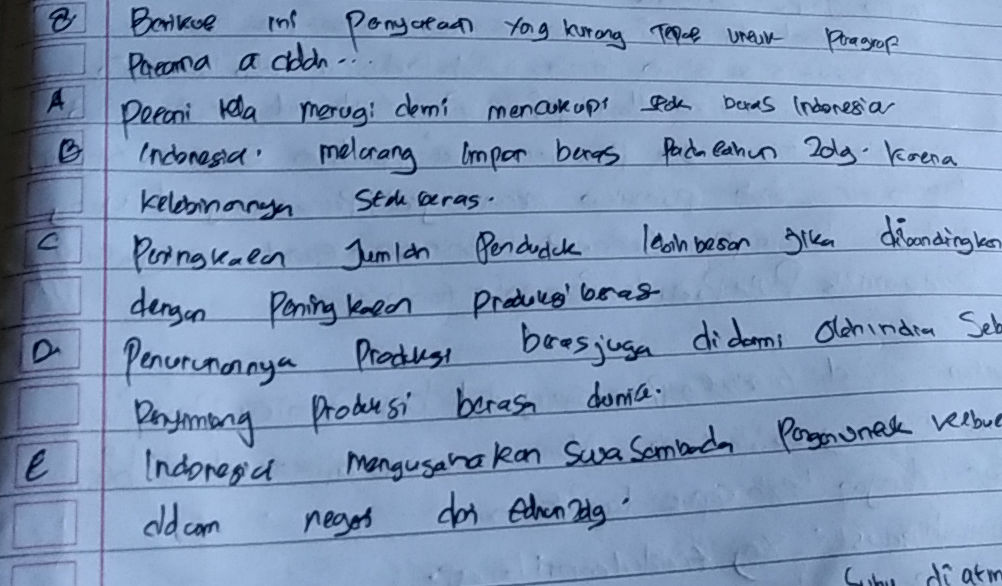 8 Berikut ini Penyataan yang kurang Tepat untuk Paragrop
Pertama a ddlh...
A Petani kita merugi demi mencukupi stok beras Indonesia
B Indonesia. melarang impor beras Pada tahun 2019. Karena
kelebihannya Stok beras.
C Peringkatan Jumlah Penduduk lebih besar jika dibandingkan
dengan Peningkatan Produksi beras
D Penurunannya Produksi beras juga didami Oleh india Seb
Penyumbang Produksi beras dunia.
E Indonesia mengusahakan Swa Sembada Pangan untuk
ddlam negeri dari tahun 2019.
di atm